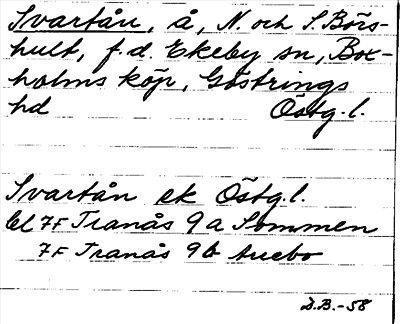 Svartån, å, N och S. Börs-
hult, f.d. Ekeby sn, Box-
holms köp, Göstrings
hd Östg.l.
Svartån ek Östg.l.
bl 7F Tranås 9a Sommen
7F Tranås 9b Aucbo
D.B.-58